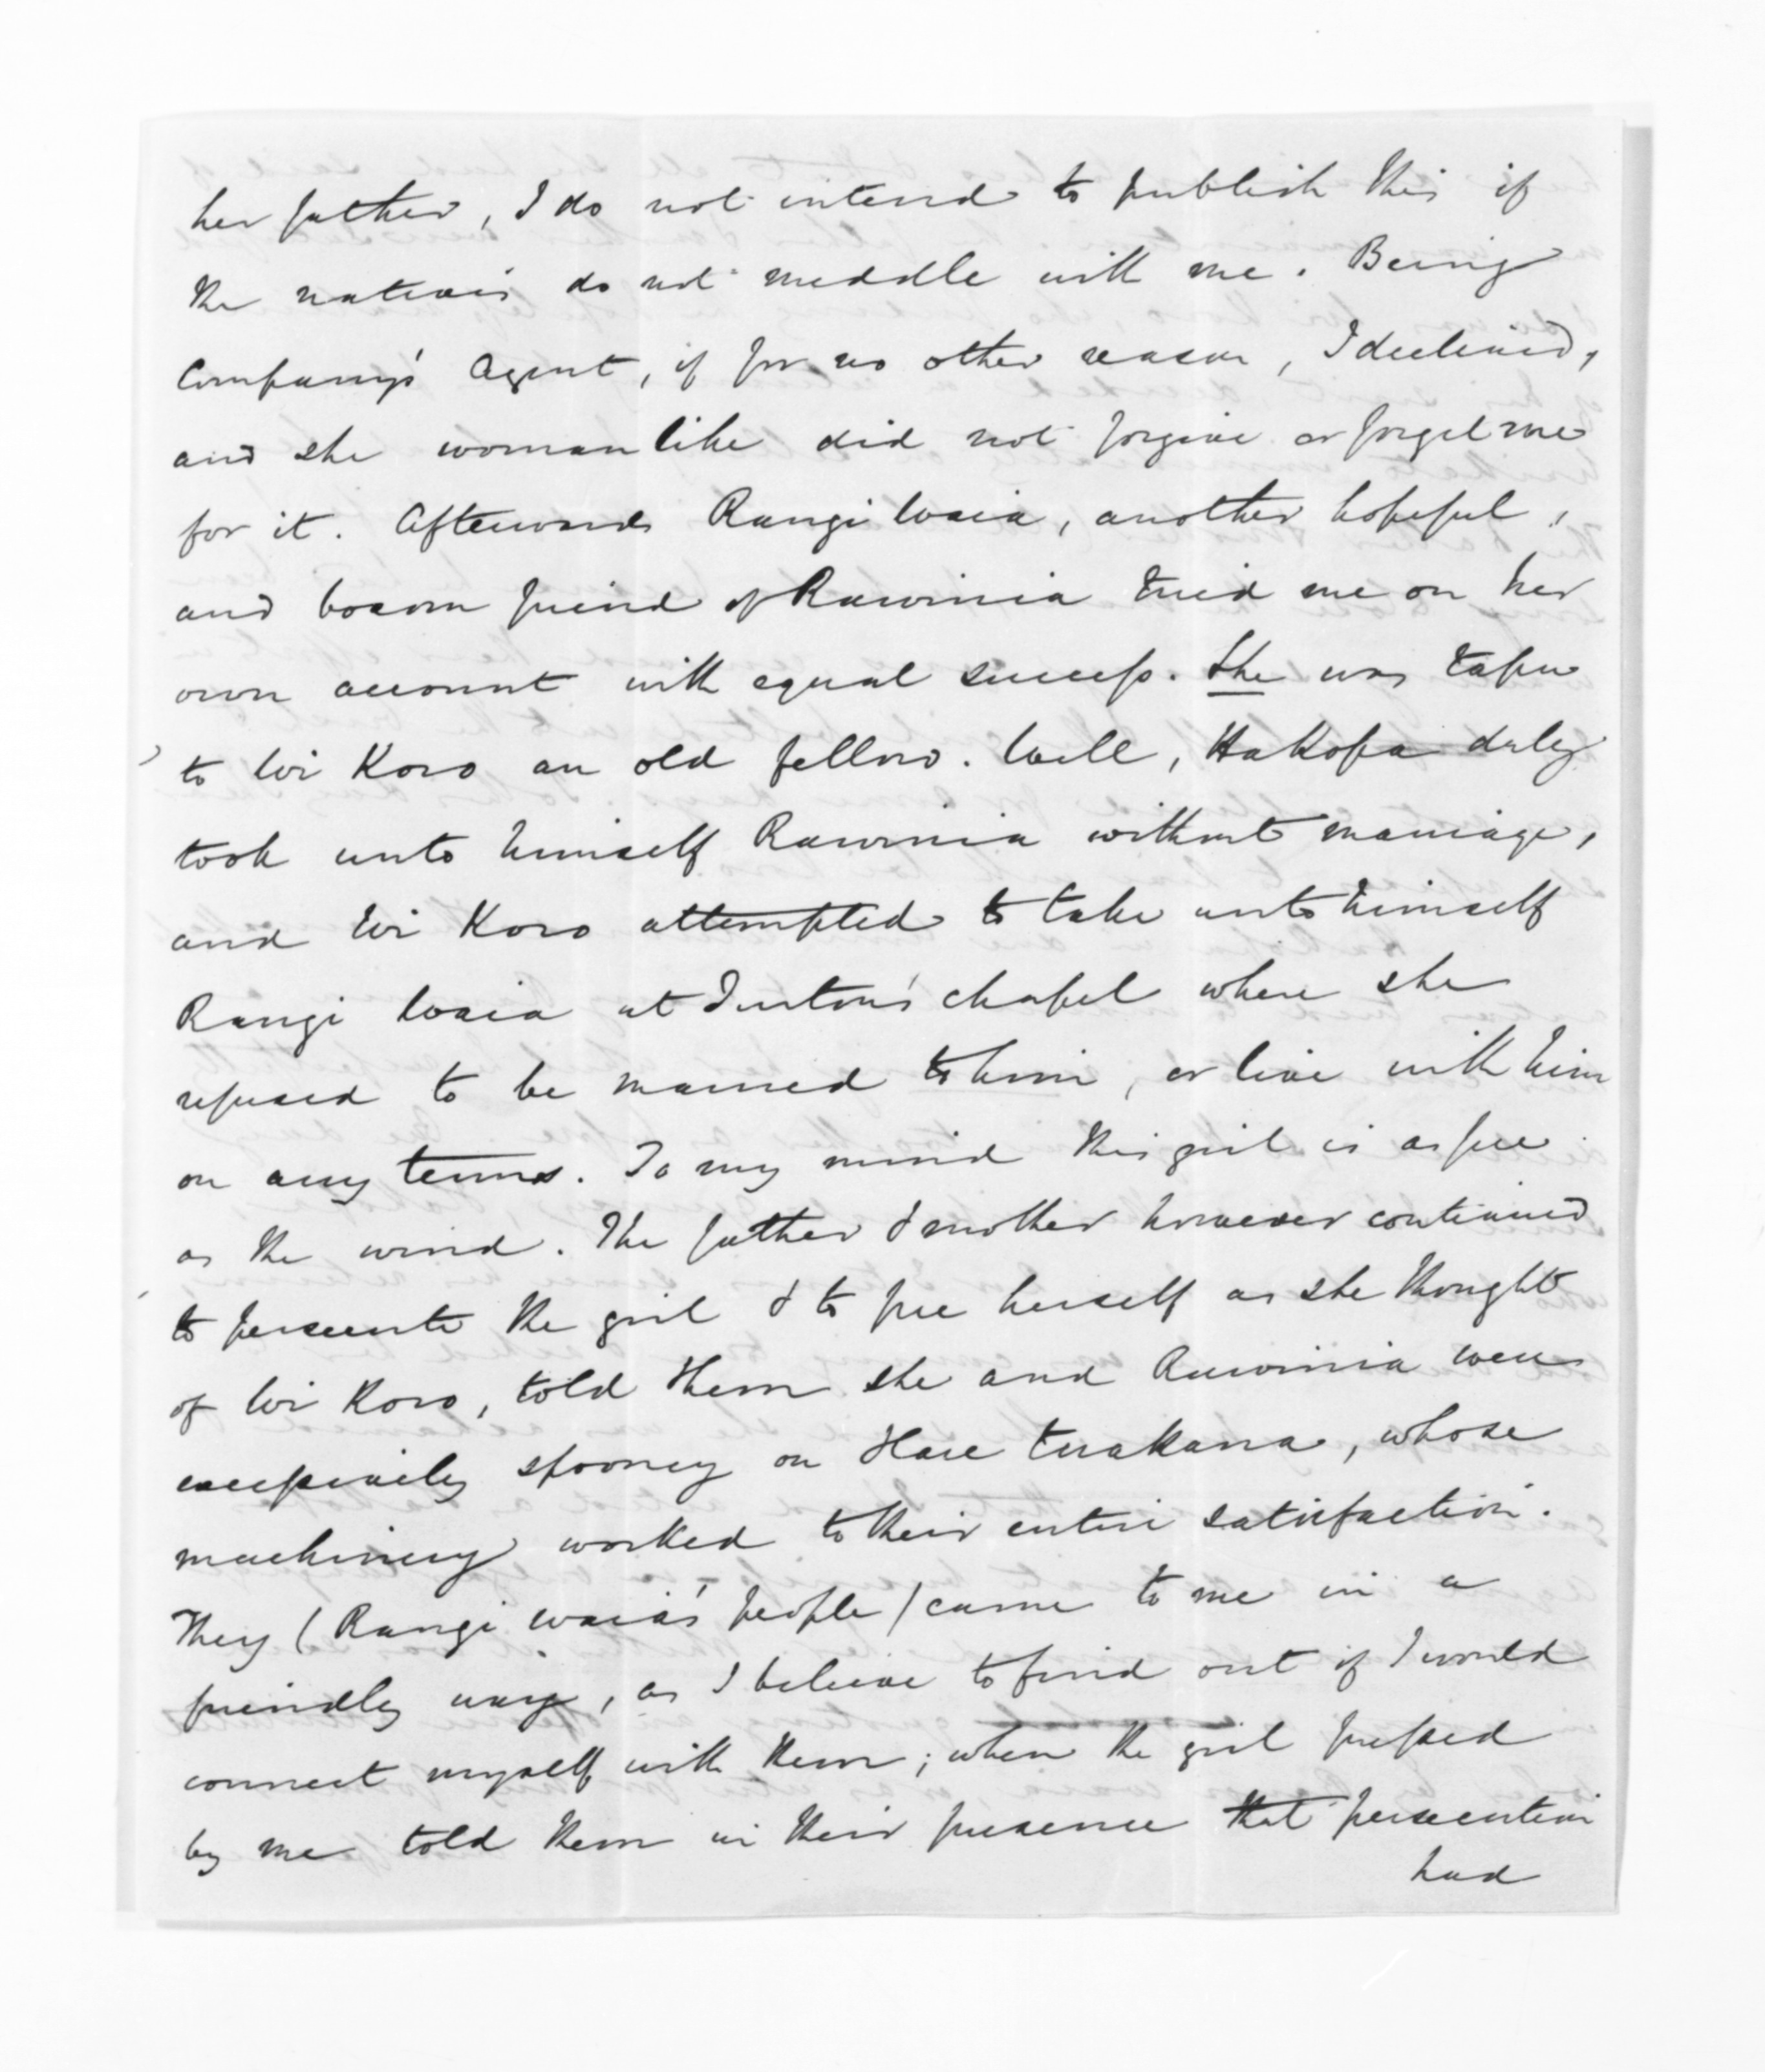 her father, I do not intend to publish this if
the natives do not meddle with me. Being
Company's Agent, if for no other reason, I declined,
and she womanlike did not forgive or forget me
for it. Afterwards Rangi Waia, another hopeful,
and bosom friend of Rawinia tried me on her
own account with equal success. She was tapu
to Wi Koro an old fellow. Well, Hakopa duly
took unto himself Rawinia without marriage,
and Wi Koro attempted to take unto himself
Rangi Waia at Turton's chapel where she
refused to be married to him, or live with him
on any terms. To my mind this girl is as free
as the wind. The father & mother however continued
to persecute the girl & to free herself as she thought
of Wi Koro, told them she and Rawinia were
excessively spooney on Hare Turakana, whose
machinery worked to their entire satisfaction.
They (Rangi Waia's people) came to me in a
friendly way, as I believe to find out if I would
connect myself with them; when the girl pressed
by me told them in their presence that persecution
had